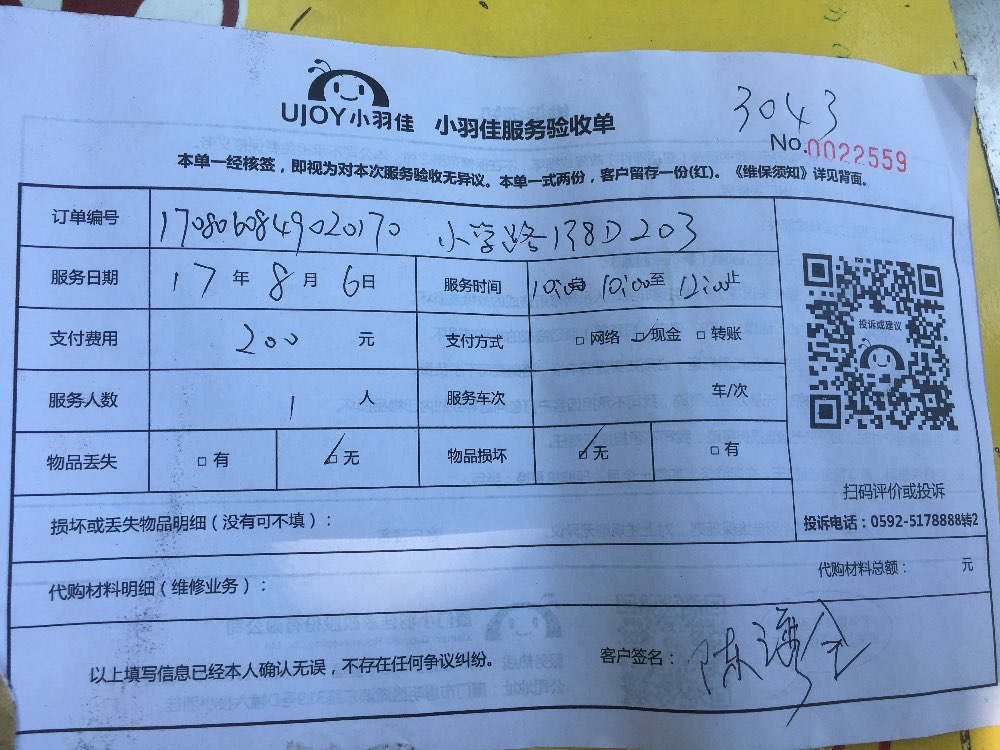 3043
UJOY小羽佳 小羽佳服务验收单
No.0022559
本单一经核签，即视为对本次服务验收无异议。本单一式两份，客户留存一份(红)。《维保须知》详见背面。
订单编号 1708060849020170 小学路138D203
服务日期 17年8月6日 服务时间 10:00自 10:00至 12:00止
支付费用 200 元 支付方式 □网络 ☑现金 □转账
服务人数 1 人 服务车次 车/次
物品丢失 □有 ☑无 物品损坏 ☑无 □有
投诉或建议
扫码评价或投诉
投诉电话：0592-5178888转2
损坏或丢失物品明细（没有可不填）：
代购材料明细（维修业务）： 代购材料总额： 元
以上填写信息已经本人确认无误，不存在任何争议纠纷。 客户签名：陈